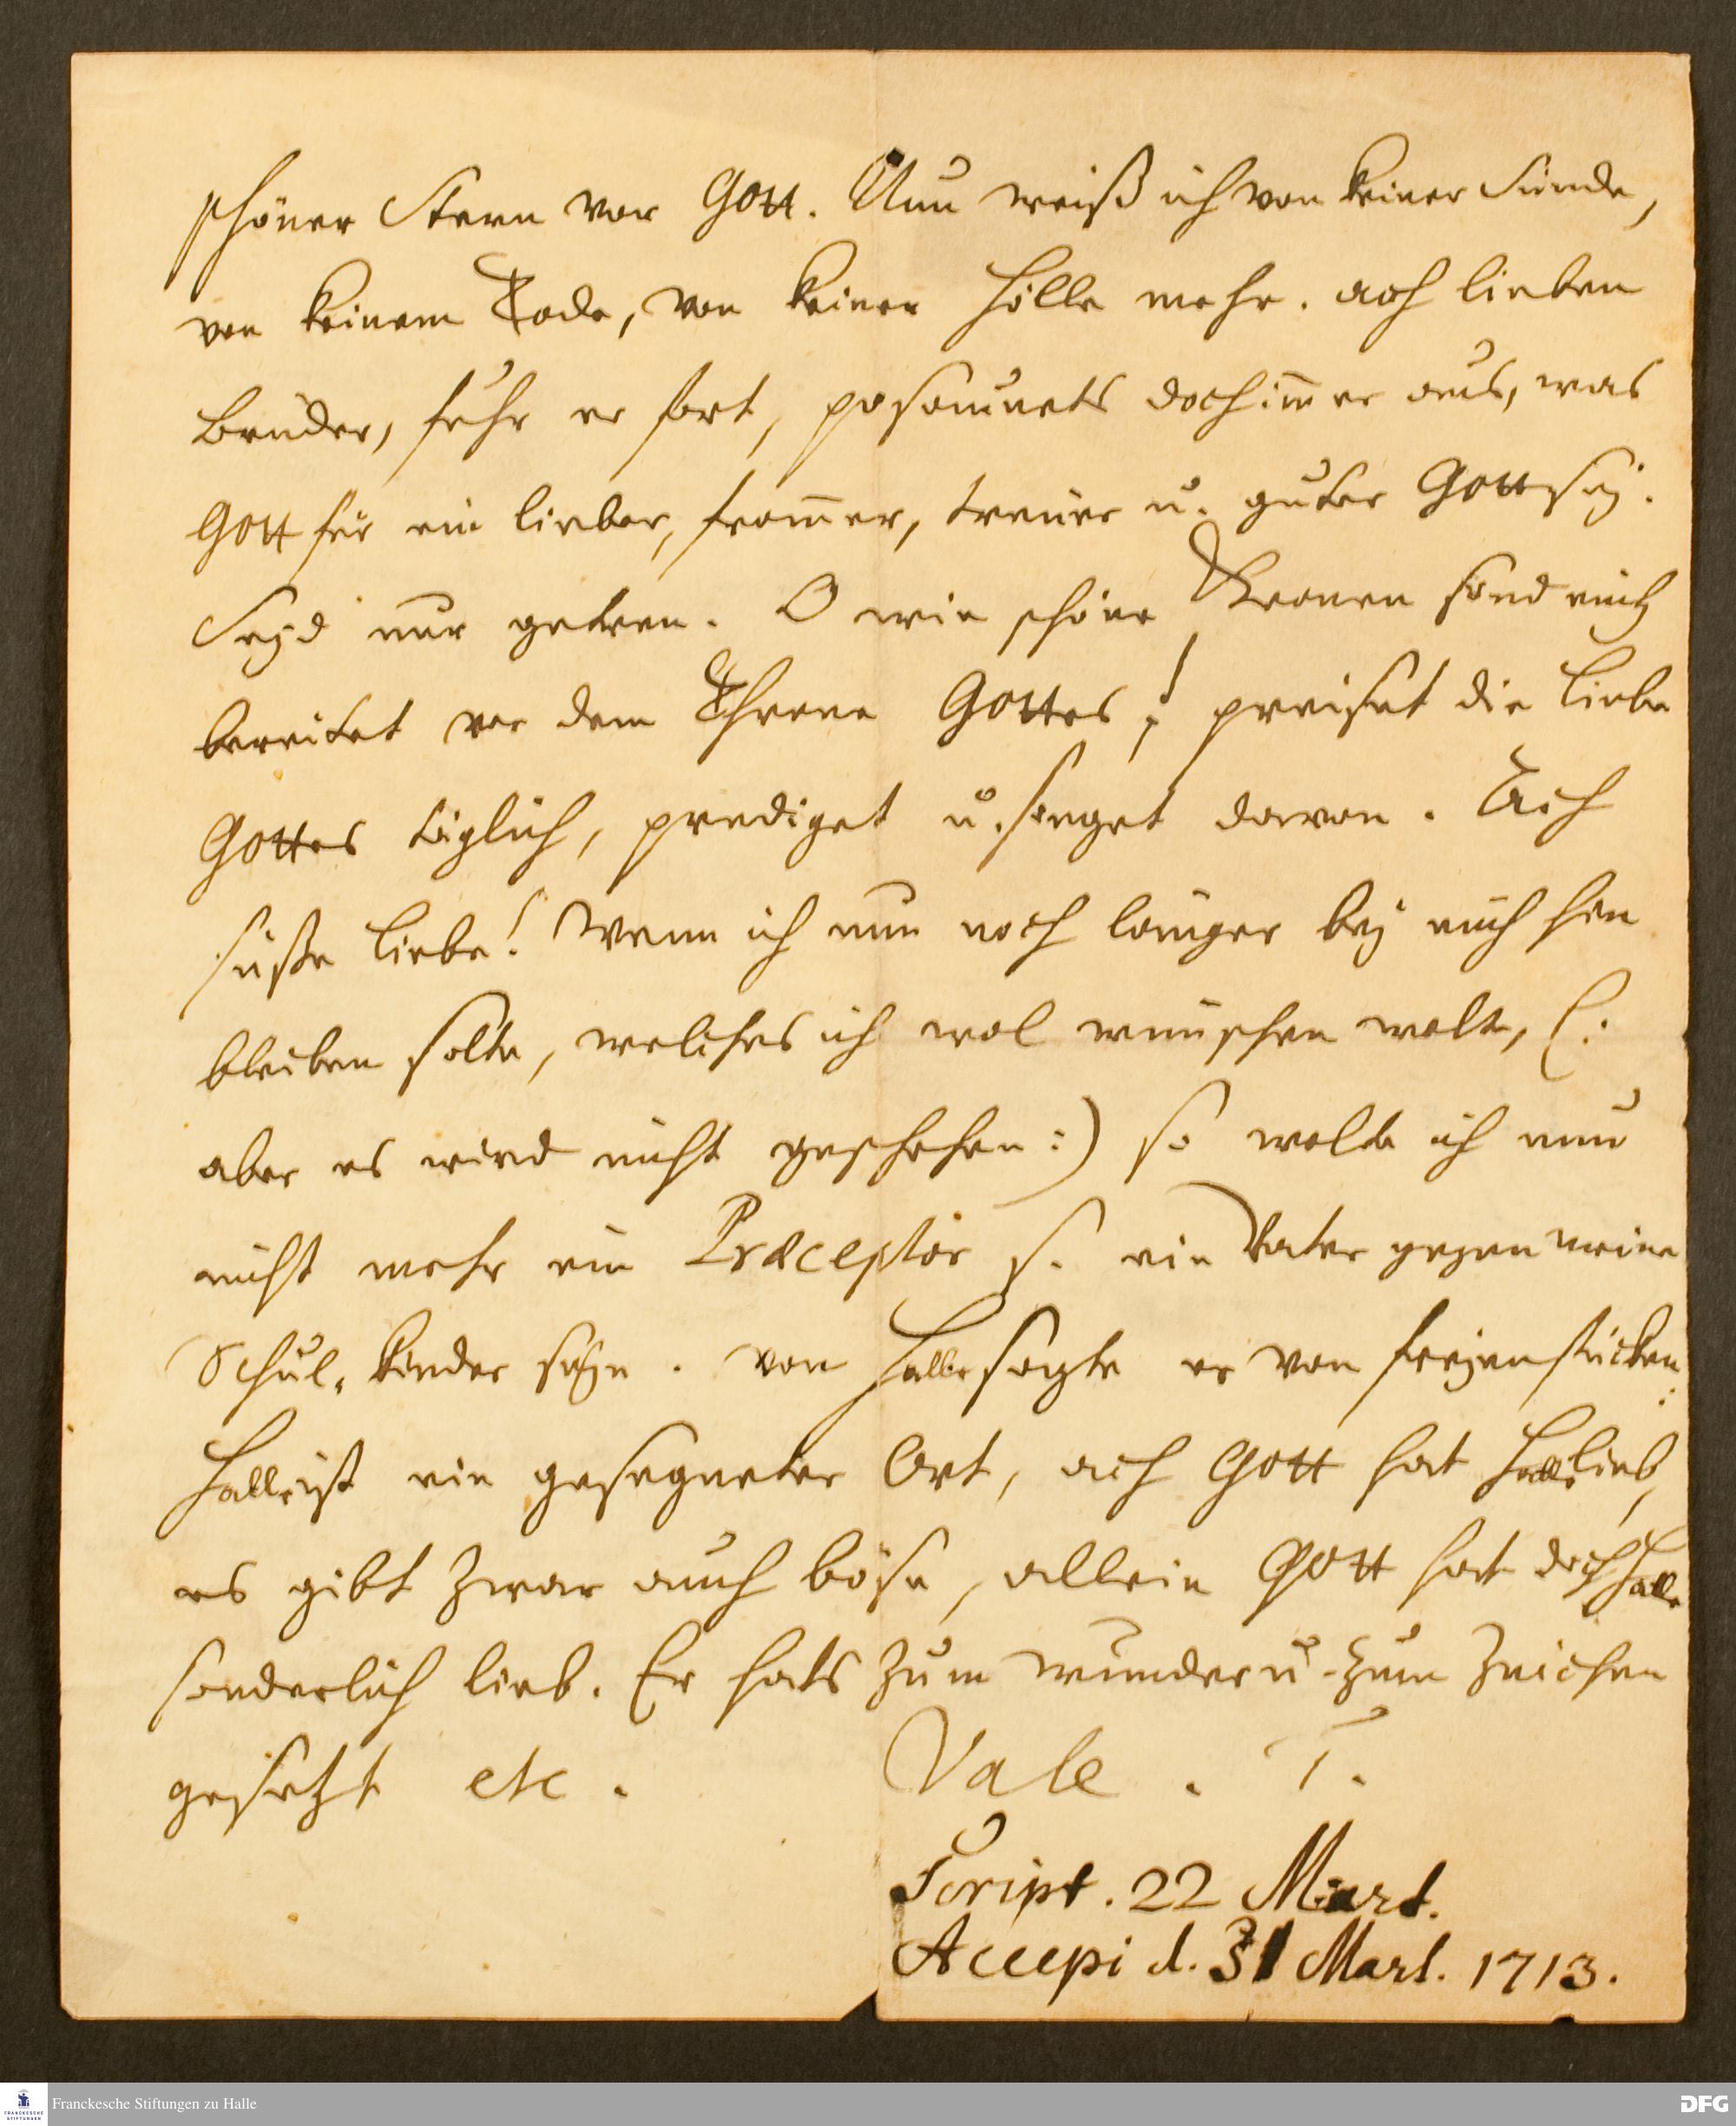 schöner Stern vor Gott. Nun weiß ich von keiner Sünde,
von keinem Tode, von keiner Hölle mehr. ach lieben
Brüder, fuhr er fort, posaunets doch im̅er aus, was
Gott für ein lieber, from̅er, treuer u. guter Gott sey.
Seyd nur getreu. O wie schöne Kronen sind euch
bereitet vor dem Throne Gottes! preiset die Liebe
Gottes täglich, prediget u. singet davon. Ach
süße Liebe! Wenn ich nun noch länger bey euch hie
bleiben solte, welches ich wol wünschen wolte, (:
aber es wird nicht geschehen:) so wolte ich nun
nicht mehr ein Præceptor s. ein Vater gegen meine
Schul-Kinder seyn. Von Halle sagte er von freyen stücken:
Halle ist ein gesegneter Ort, ach Gott hat Halle lieb,
es gibt zwar auch böse, allein Gott hat doch Halle
sonderlich lieb. Er hats zum Wunder u. zum Zeichen
gesetzt etc. Vale. T.
Script. 22 Mart.
Accepi d. 31 Mart. 1713.
FRANCKESCHE STIFTUNGEN
Franckesche Stiftungen zu Halle
DFG